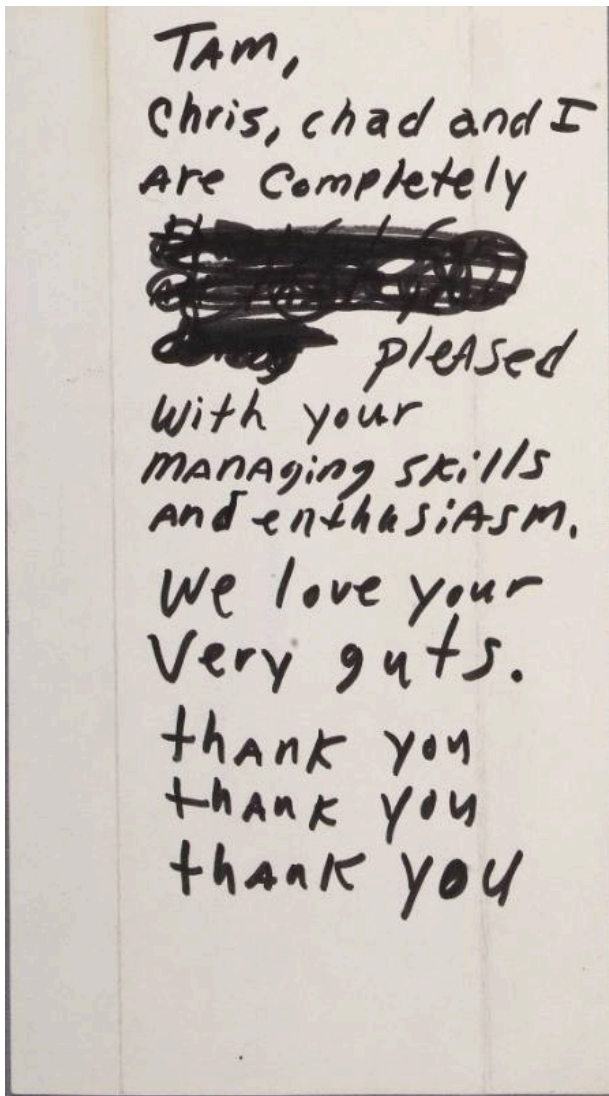 TAM,
Chris, chad and I
Are Completely
pleAsed
With your
mAnAging skills
And enthusiAsm.
We love your
Very guts.
thAnk you
thAnk you
thAnk you